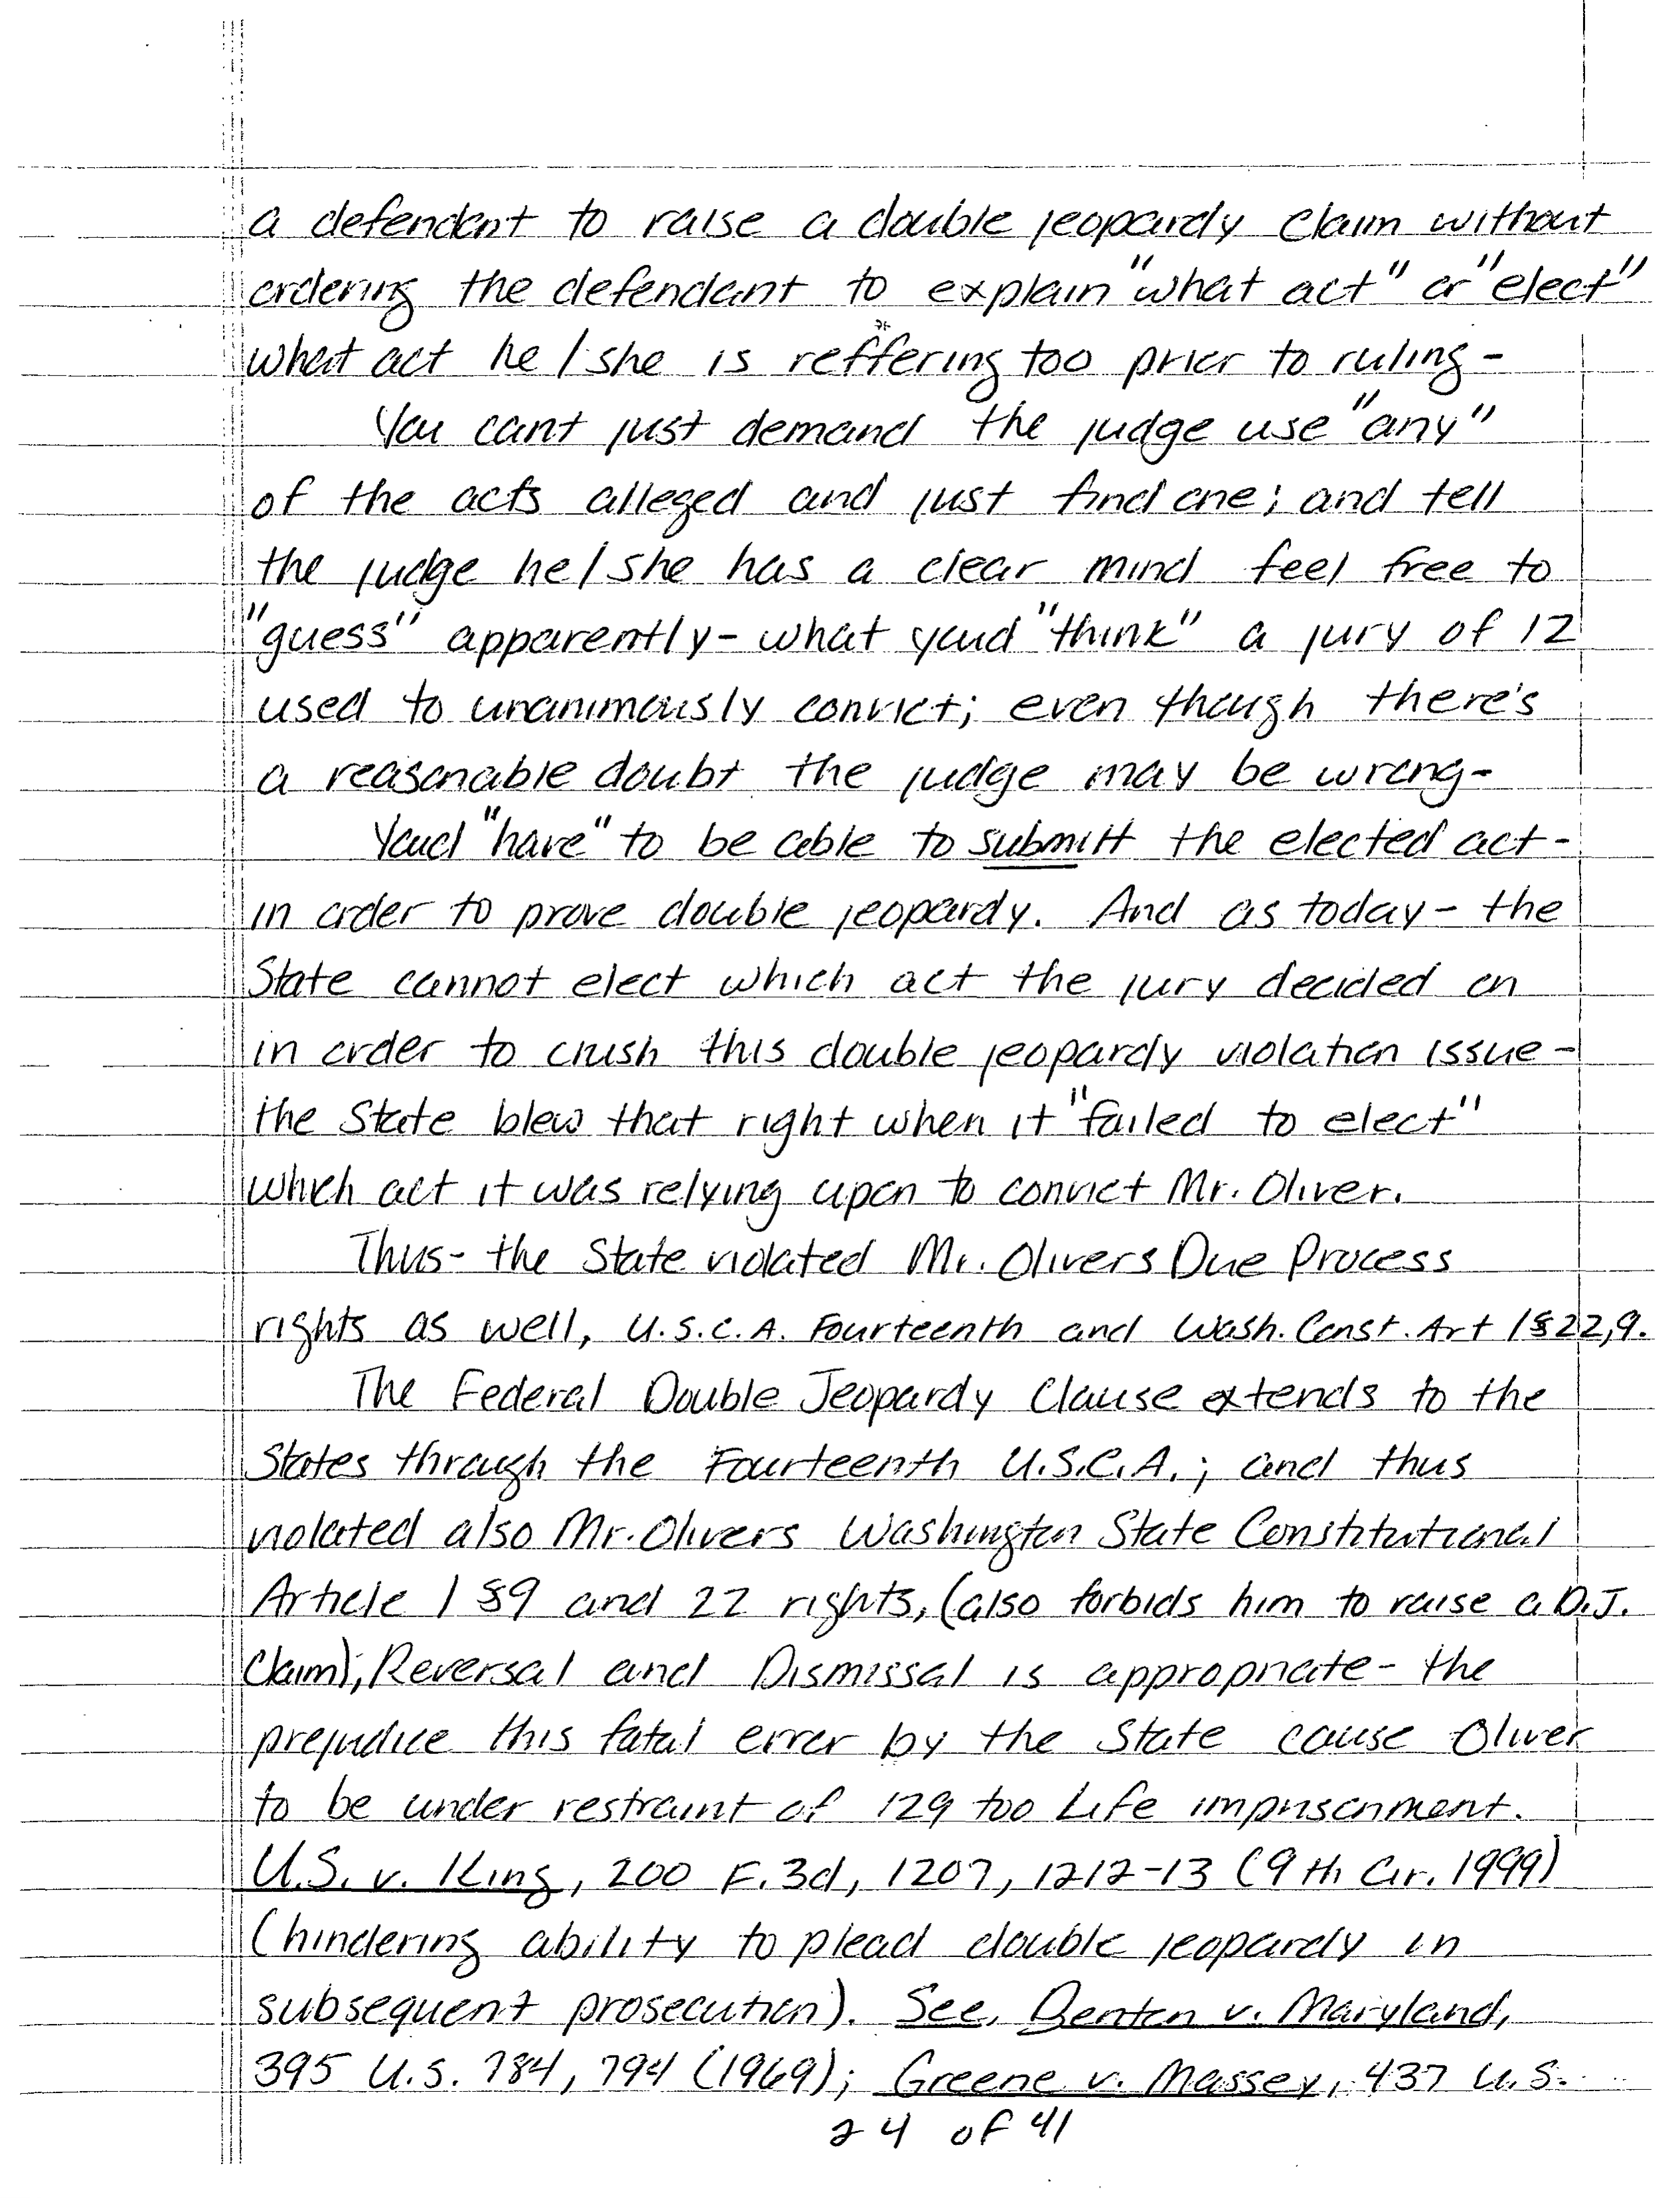 a defendant to raise a double jeopardy claim without
ordering the defendant to explain "what act" or "elect"
what act he/she is reffering too prior to ruling-
You cant just demand the judge use "any"
of the acts alleged and just find one; and tell
the judge he/she has a clear mind feel free to
"guess" apparently- what youd "think" a jury of 12
used to unanimously convict; even though there's
a reasonable doubt the judge may be wrong-
Youd "have" to be able to submitt the elected act-
in order to prove double jeopardy. And as today- the
State cannot elect which act the jury decided on
in order to crush this double jeopardy violation issue-
the State blew that right when it "failed to elect"
which act it was relying upon to convict Mr. Oliver.
Thus- the State violated Mr. Olivers Due Process
rights as well, U.S.C.A. Fourteenth and Wash. Const. Art 1 §22,9.
The Federal Double Jeopardy Clause extends to the
States through the Fourteenth U.S.C.A.; and thus
violated also Mr. Olivers Washington State Constitutional
Article 1 §9 and 22 rights, (also forbids him to raise a D.J.
Claim); Reversal and Dismissal is appropriate- the
prejudice this fatal error by the State cause Oliver
to be under restraint of 129 too Life imprisonment.
U.S. v. King, 200 F.3d, 1207, 1212-13 (9th Cir. 1999)
(hindering ability to plead double jeopardy in
subsequent prosecution). See, Benton v. Maryland,
395 U.S. 784, 794 (1969); Greene v. Massey, 437 U.S.
24 of 41